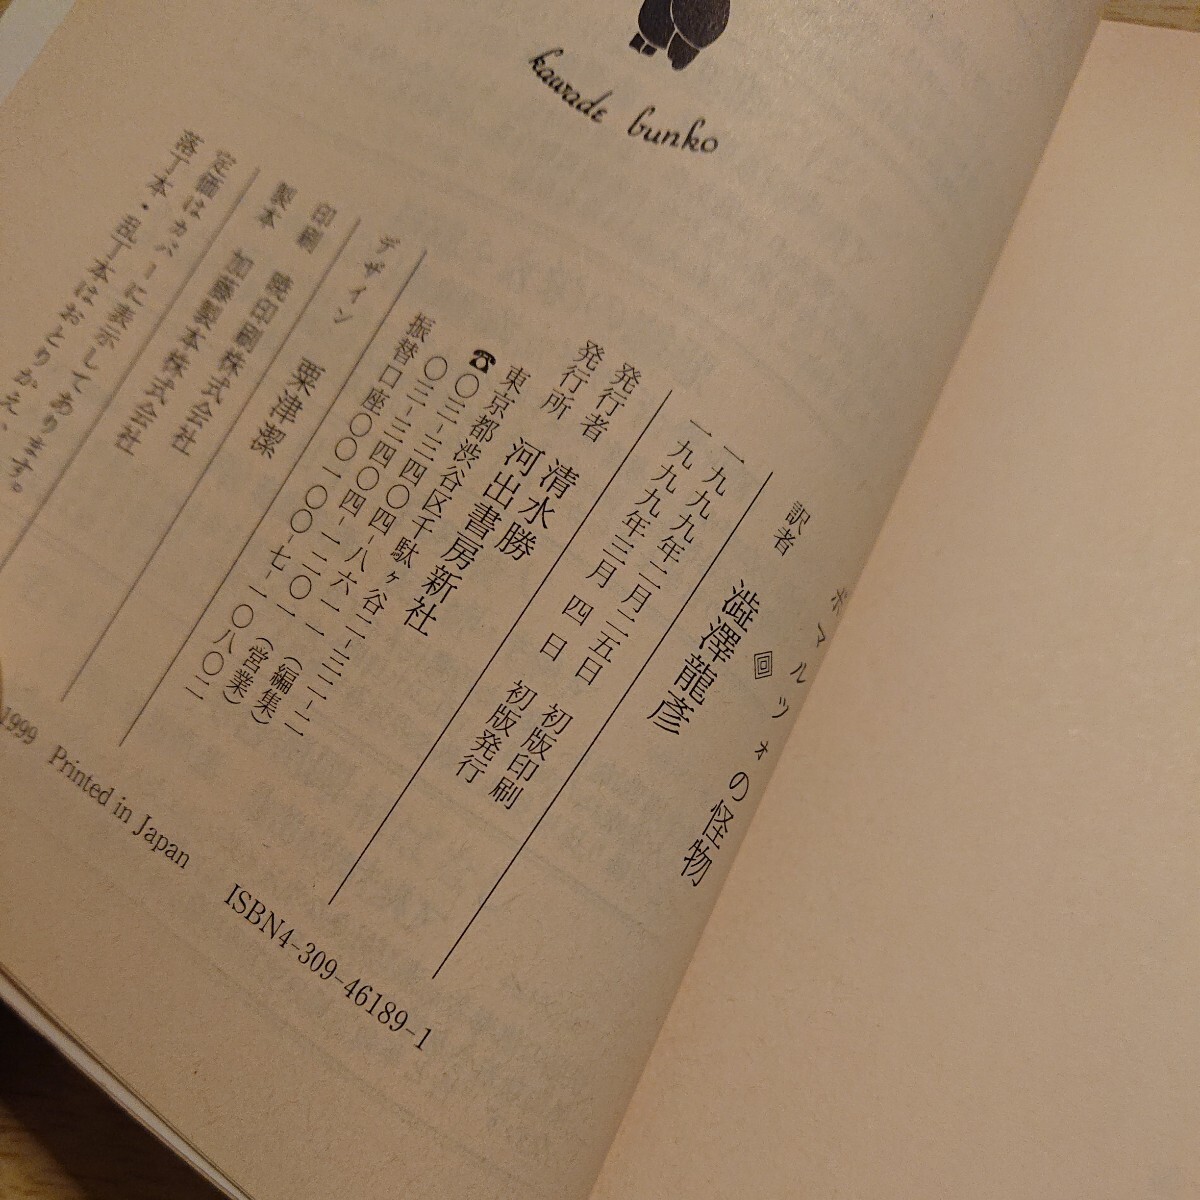 kawade bunko
ボマルツォの怪物
訳者 澁澤龍彦
一九九九年二月二五日 初版印刷
一九九九年三月 四 日 初版発行
発行者 清水勝
発行所 河出書房新社
東京都渋谷区千駄ヶ谷二-三二-二
☎〇三-三四〇四-八六一一(編集)
〇三-三四〇四-一二〇一(営業)
振替口座〇〇一〇〇-七-一〇八〇二
デザイン 粟津潔
印刷 暁印刷株式会社
製本 加藤製本株式会社
定価はカバーに表示してあります。
落丁本・乱丁本はおとりかえ、
1999 Printed in Japan
ISBN4-309-46189-1